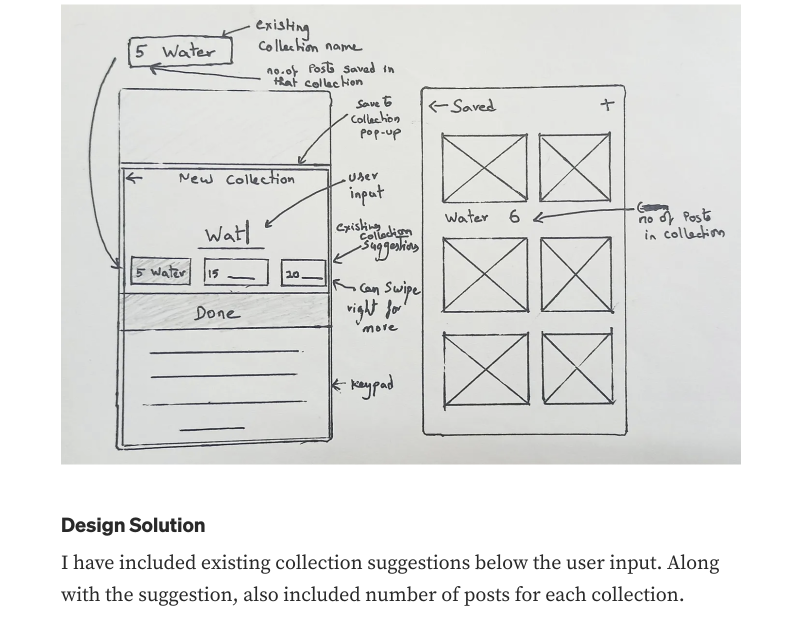 existing
Collection name
5 Water
no. of Posts saved in
that collection
Save to
Collection
pop-up
← New Collection
user
input
Wat
existing
Collection
suggestions
5 Water
15
20
Can Swipe
right for
more
Done
Keypad
← Saved +
Water 6
no of Posts
in collection
Design Solution
I have included existing collection suggestions below the user input. Along
with the suggestion, also included number of posts for each collection.